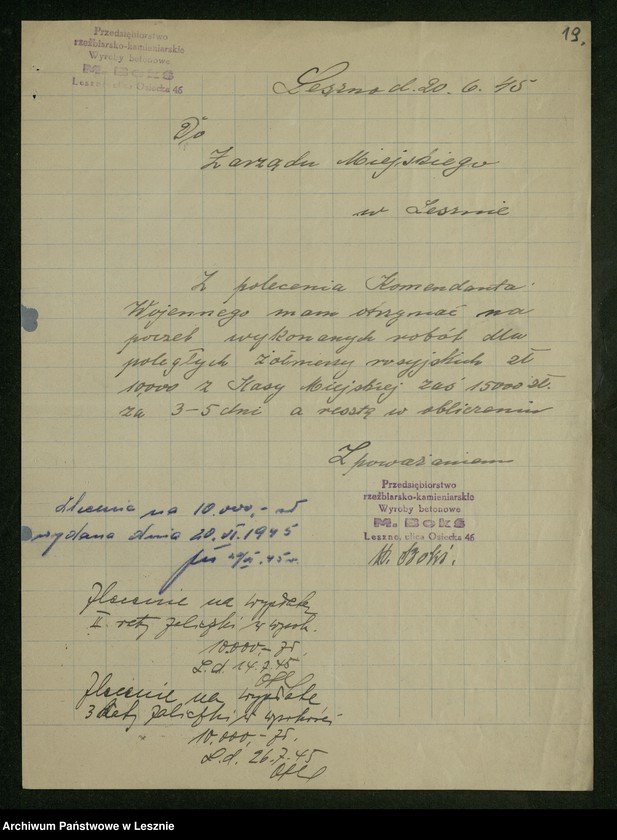 19.
Przedsiębiorstwo
rzeźbiarsko-kamieniarskie
Wyroby betonowe
M. Bokś
Leszno, ulica Osiecka 46
Leszno d. 20. 6. 45
Do
Zarządu Miejskiego
w Lesznie
Z polecenia Komendanta
Wojennego mam otrzymać na
poczet wykonanych robót dla
poległych żółnierzy rosyjskich zł
10,000 z Kasy Miejskiej zaś 15000 zł.
za 3-5 dni a resztę w obliczeniu
Z poważaniem
Przedsiębiorstwo
rzeźbiarsko-kamieniarskie
Wyroby betonowe
M. Bokś
Leszno, ulica Osiecka 46
M. Bokś.
Zlecenia na 10.000,- zł
wydana dnia 20.VI.1945
Zlecenie na wypłatę
II. raty zaliczki w wysok.
10.000,- zł.
L.d. 14.7.45
Zlecenie na wypłatę
3 raty zaliczki w wysokości
10.000,- zł.
L.d. 26.7.45
Archiwum Państwowe w Lesznie